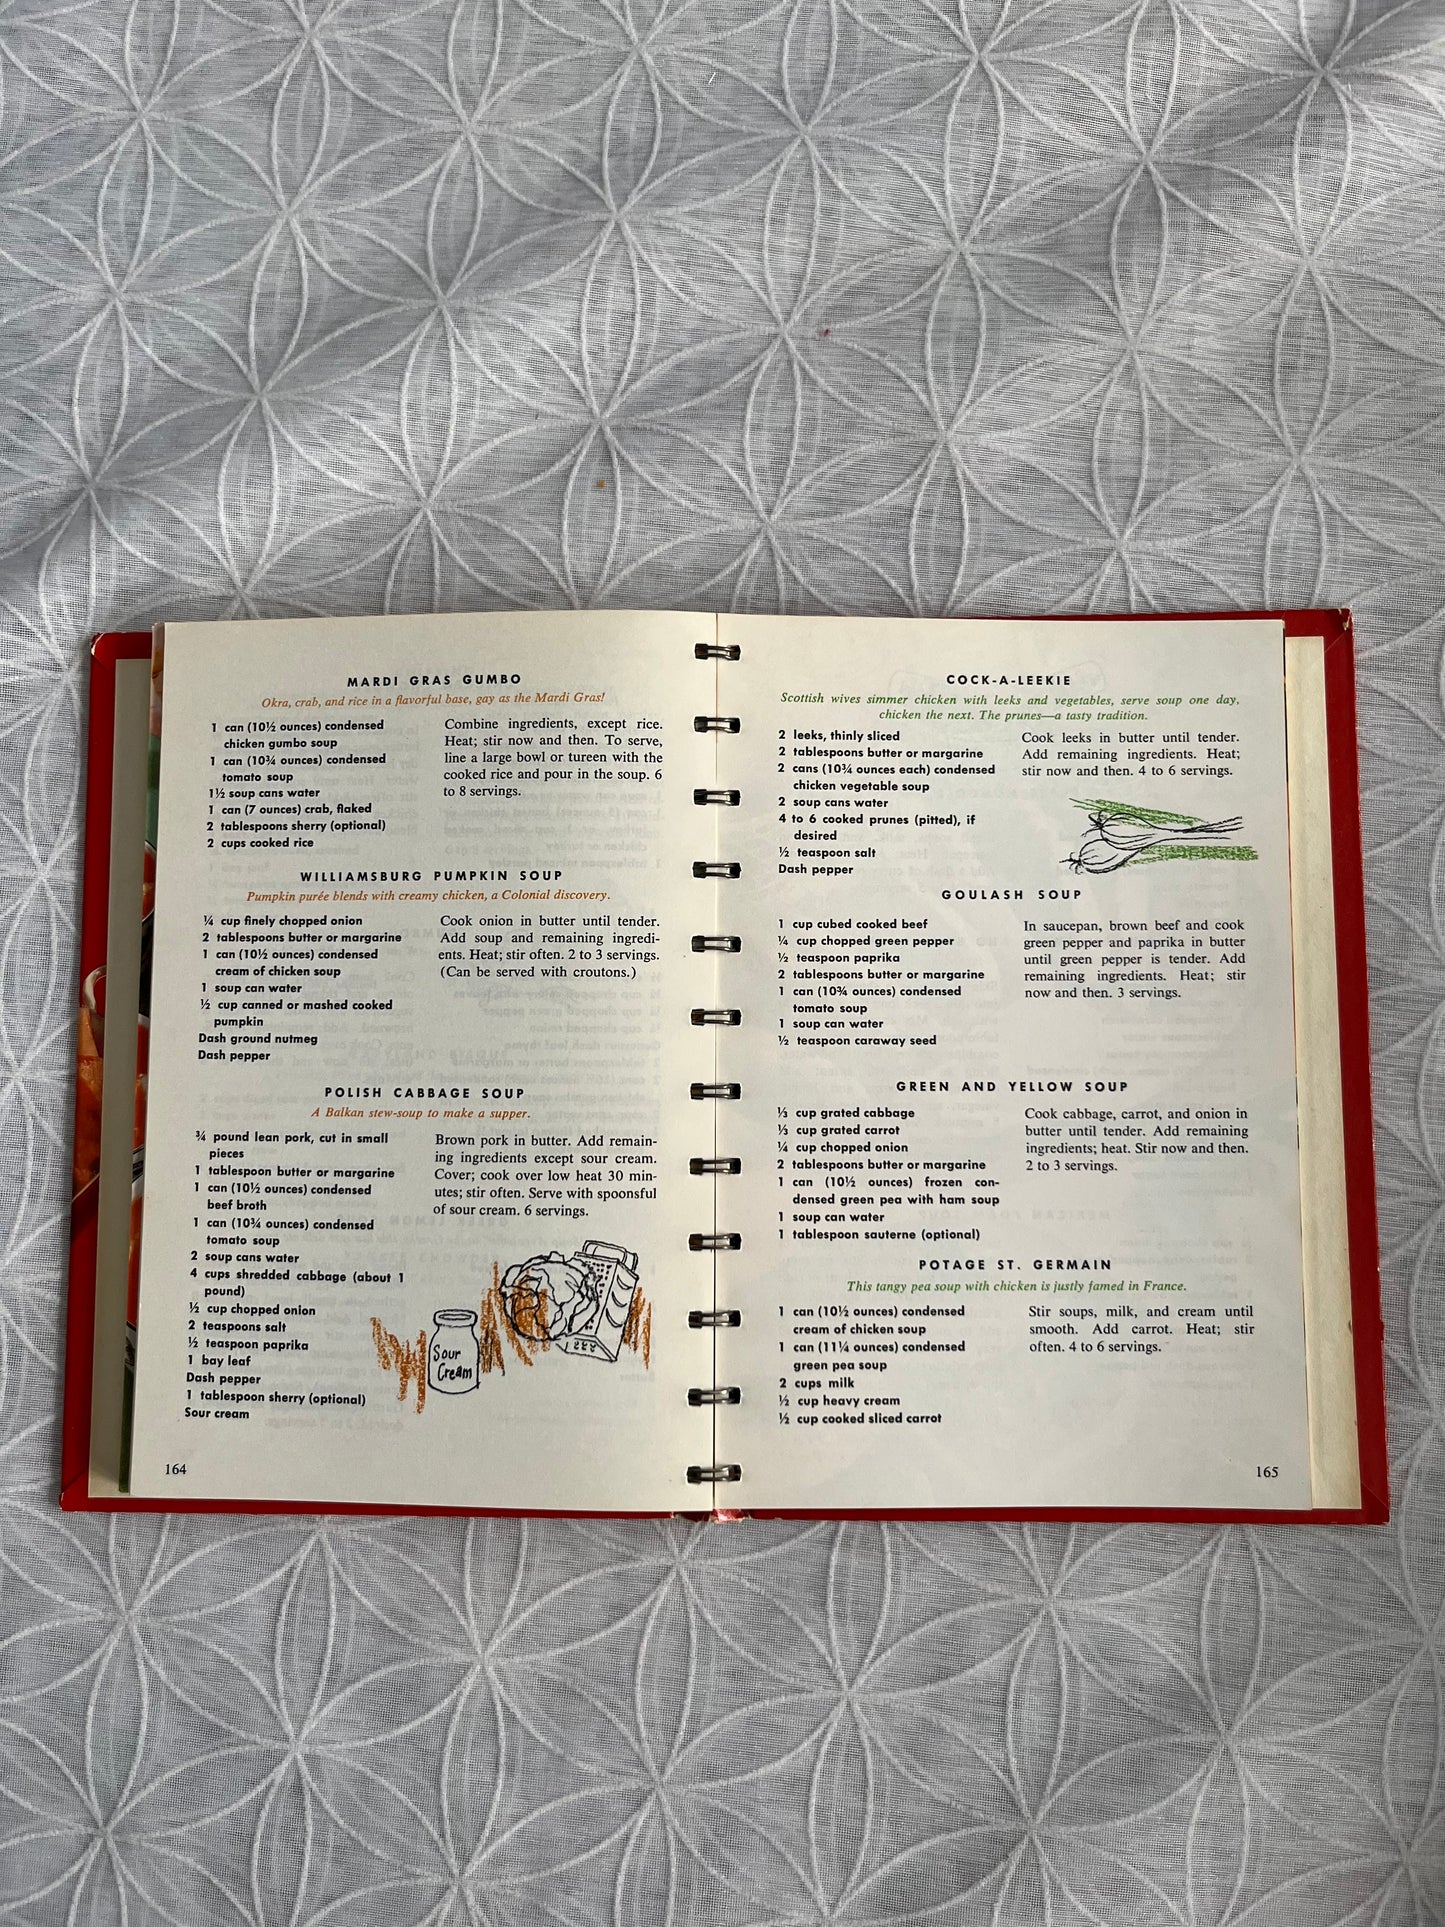 MARDI GRAS GUMBO
Okra, crab, and rice in a flavorful base, gay as the Mardi Gras!
1 can (10½ ounces) condensed
chicken gumbo soup
1 can (10¾ ounces) condensed
tomato soup
1½ soup cans water
1 can (7 ounces) crab, flaked
2 tablespoons sherry (optional)
2 cups cooked rice
Combine ingredients, except rice.
Heat; stir now and then. To serve,
line a large bowl or tureen with the
cooked rice and pour in the soup. 6
to 8 servings.
WILLIAMSBURG PUMPKIN SOUP
Pumpkin purée blends with creamy chicken, a Colonial discovery.
¼ cup finely chopped onion
2 tablespoons butter or margarine
1 can (10½ ounces) condensed
cream of chicken soup
1 soup can water
½ cup canned or mashed cooked
pumpkin
Dash ground nutmeg
Dash pepper
Cook onion in butter until tender.
Add soup and remaining ingredi-
ents. Heat; stir often. 2 to 3 servings.
(Can be served with croutons.)
POLISH CABBAGE SOUP
A Balkan stew-soup to make a supper.
¾ pound lean pork, cut in small
pieces
1 tablespoon butter or margarine
1 can (10½ ounces) condensed
beef broth
1 can (10¾ ounces) condensed
tomato soup
2 soup cans water
4 cups shredded cabbage (about 1
pound)
½ cup chopped onion
2 teaspoons salt
½ teaspoon paprika
1 bay leaf
Dash pepper
1 tablespoon sherry (optional)
Sour cream
Brown pork in butter. Add remain-
ing ingredients except sour cream.
Cover; cook over low heat 30 min-
utes; stir often. Serve with spoonsful
of sour cream. 6 servings.
Sour
Cream
164
COCK-A-LEEKIE
Scottish wives simmer chicken with leeks and vegetables, serve soup one day,
chicken the next. The prunes—a tasty tradition.
2 leeks, thinly sliced
2 tablespoons butter or margarine
2 cans (10¾ ounces each) condensed
chicken vegetable soup
2 soup cans water
4 to 6 cooked prunes (pitted), if
desired
½ teaspoon salt
Dash pepper
Cook leeks in butter until tender.
Add remaining ingredients. Heat;
stir now and then. 4 to 6 servings.
GOULASH SOUP
1 cup cubed cooked beef
¼ cup chopped green pepper
½ teaspoon paprika
2 tablespoons butter or margarine
1 can (10¾ ounces) condensed
tomato soup
1 soup can water
½ teaspoon caraway seed
In saucepan, brown beef and cook
green pepper and paprika in butter
until green pepper is tender. Add
remaining ingredients. Heat; stir
now and then. 3 servings.
GREEN AND YELLOW SOUP
⅓ cup grated cabbage
⅓ cup grated carrot
¼ cup chopped onion
2 tablespoons butter or margarine
1 can (10½ ounces) frozen con-
densed green pea with ham soup
1 soup can water
1 tablespoon sauterne (optional)
Cook cabbage, carrot, and onion in
butter until tender. Add remaining
ingredients; heat. Stir now and then.
2 to 3 servings.
POTAGE ST. GERMAIN
This tangy pea soup with chicken is justly famed in France.
1 can (10½ ounces) condensed
cream of chicken soup
1 can (11¼ ounces) condensed
green pea soup
2 cups milk
½ cup heavy cream
½ cup cooked sliced carrot
Stir soups, milk, and cream until
smooth. Add carrot. Heat; stir
often. 4 to 6 servings.
165